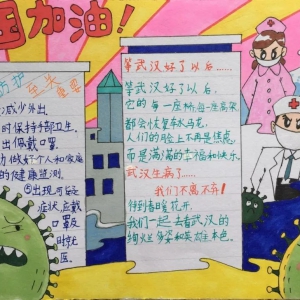 国加油!
防护
至关
重要
减少外出
时保持手部卫生,
出佩戴口罩
功做好个人和家庭
的健康监测,
⑤出现可疑
症状,应戴
口罩及
时就
医
等武汉好了以后……
等武汉好了以后,
它的每一座桥每一座高架
都会恢复车水马龙,
人们的脸上不再是焦虑,
而是满满的幸福和快乐。
武汉生病了……
我们不离不弃!
待到春暖花开,
我们一起去看武汉的
绚烂多姿和英雄本色。